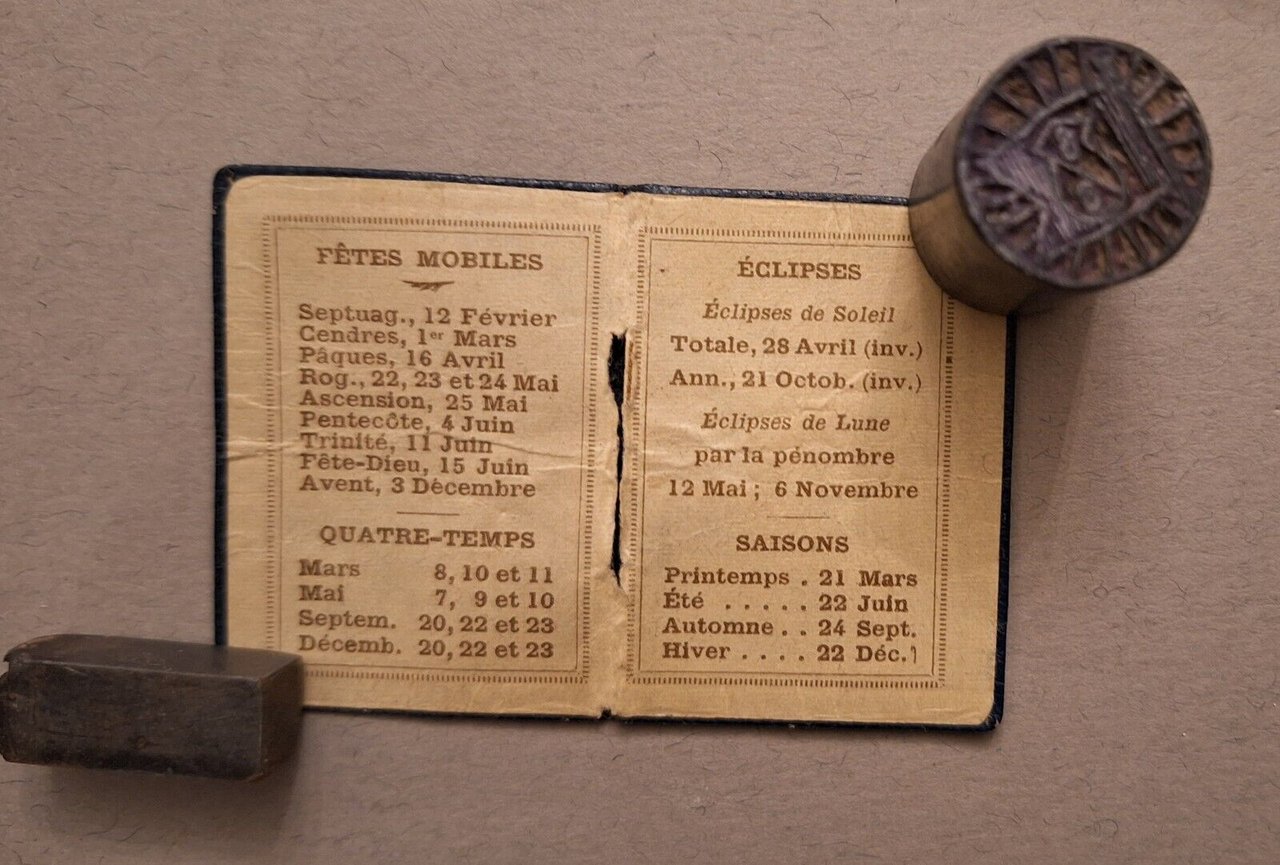 FÊTES MOBILES
Septuag., 12 Février
Cendres, 1er Mars
Pâques, 16 Avril
Rog., 22, 23 et 24 Mai
Ascension, 25 Mai
Pentecôte, 4 Juin
Trinité, 11 Juin
Fête-Dieu, 15 Juin
Avent, 3 Décembre
QUATRE-TEMPS
Mars 8, 10 et 11
Mai 7, 9 et 10
Septem. 20, 22 et 23
Décemb. 20, 22 et 23
ÉCLIPSES
Éclipses de Soleil
Totale, 28 Avril (inv.)
Ann., 21 Octob. (inv.)
Éclipses de Lune
par la pénombre
12 Mai ; 6 Novembre
SAISONS
Printemps . 21 Mars
Été . . . . . 22 Juin
Automne . . 24 Sept.
Hiver . . . . 22 Déc.